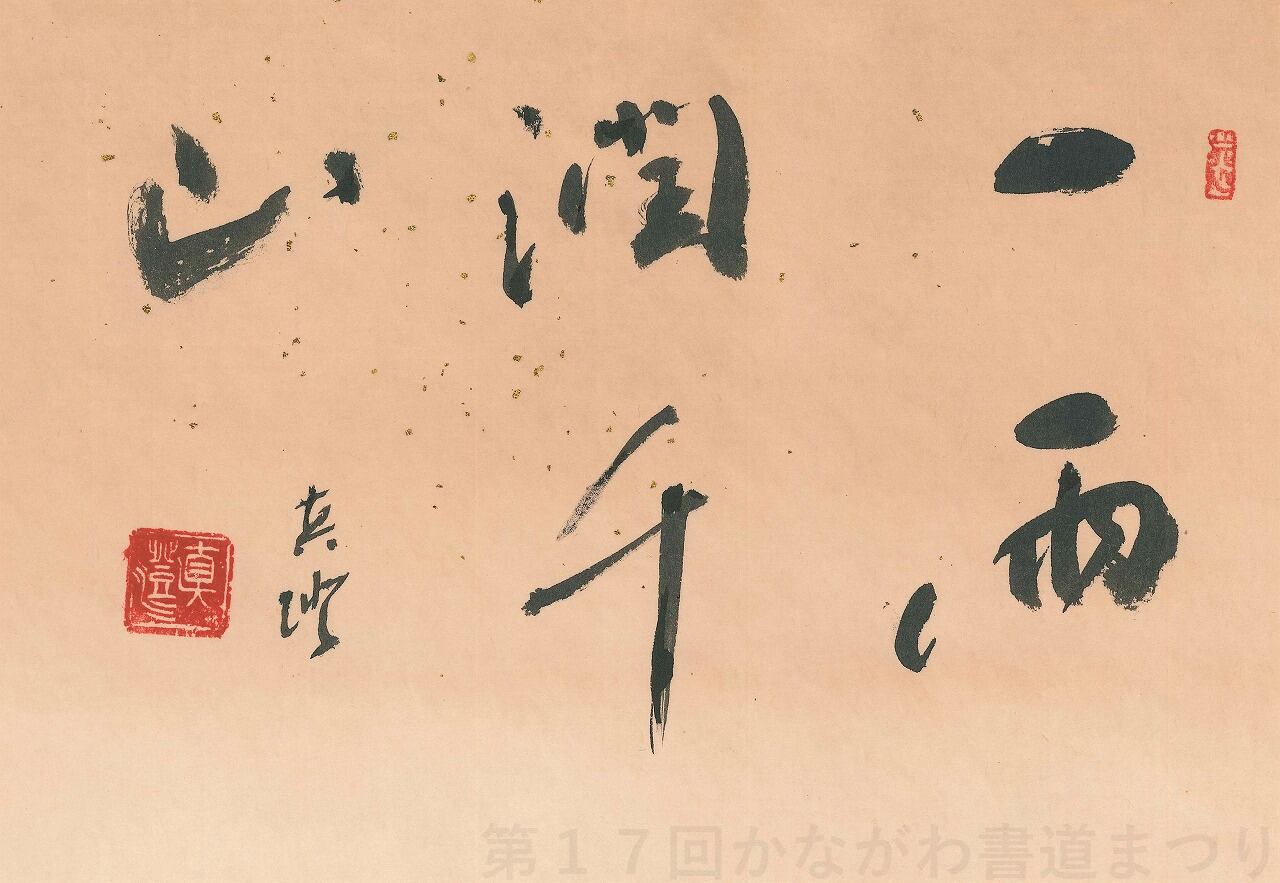 一雨
潤千
山
真澄
真澄
第17回かながわ書道まつり